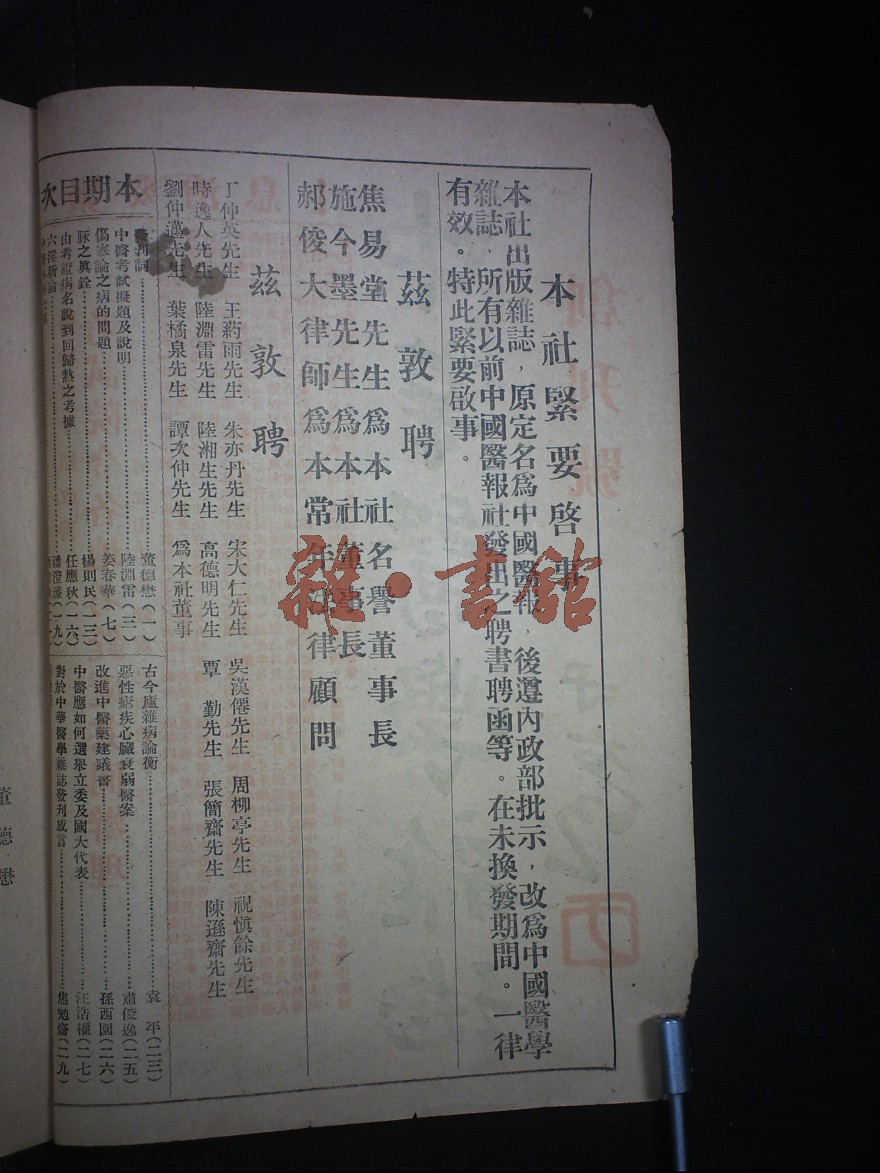 本社緊要啓事
本社出版雜誌，原定名爲中國醫報，後遵內政部批示，改爲中國醫學
雜誌，所有以前中國醫報社發出之聘書聘函等。在未換發期間。一律
有效。特此緊要啟事。
茲敦聘
焦易堂先生爲本社名譽董事長
施今墨先生爲本社董事長
郝俊大律師爲本常年法律顧問
茲敦聘
丁仲英先生 王葯雨先生 朱亦丹先生 宋大仁先生 吳漢僊先生 周柳亭先生 祝慎餘先生
時逸人先生 陸淵雷先生 陸湘生先生 高德明先生 覃勤先生 張簡齋先生 陳遜齋先生
劉仲邁先生 葉橘泉先生 譚次仲先生 爲本社董事
本期目次
刊詞 董德懋（一）
中醫考試擬題及說明 陸淵雷（三）
傷寒論之病的問題 姜春華（七）
脈之眞銓 楊則民（一三）
由考證病名說到回歸熱之考據 任應秋（一六）
六淫新論 潘澄濂（一九）
古今廬雜病論衡 袁平（二三）
惡性瘧疾心臟衰弱醫案 肅俊逸（二五）
改進中醫藥建議書 孫西園（二六）
中醫應如何選舉立委及國大代表 汪浩權（二七）
對於中華醫學雜誌發刊感言 焦勉齋（二九）
創刊號
董德懋
雜·書館